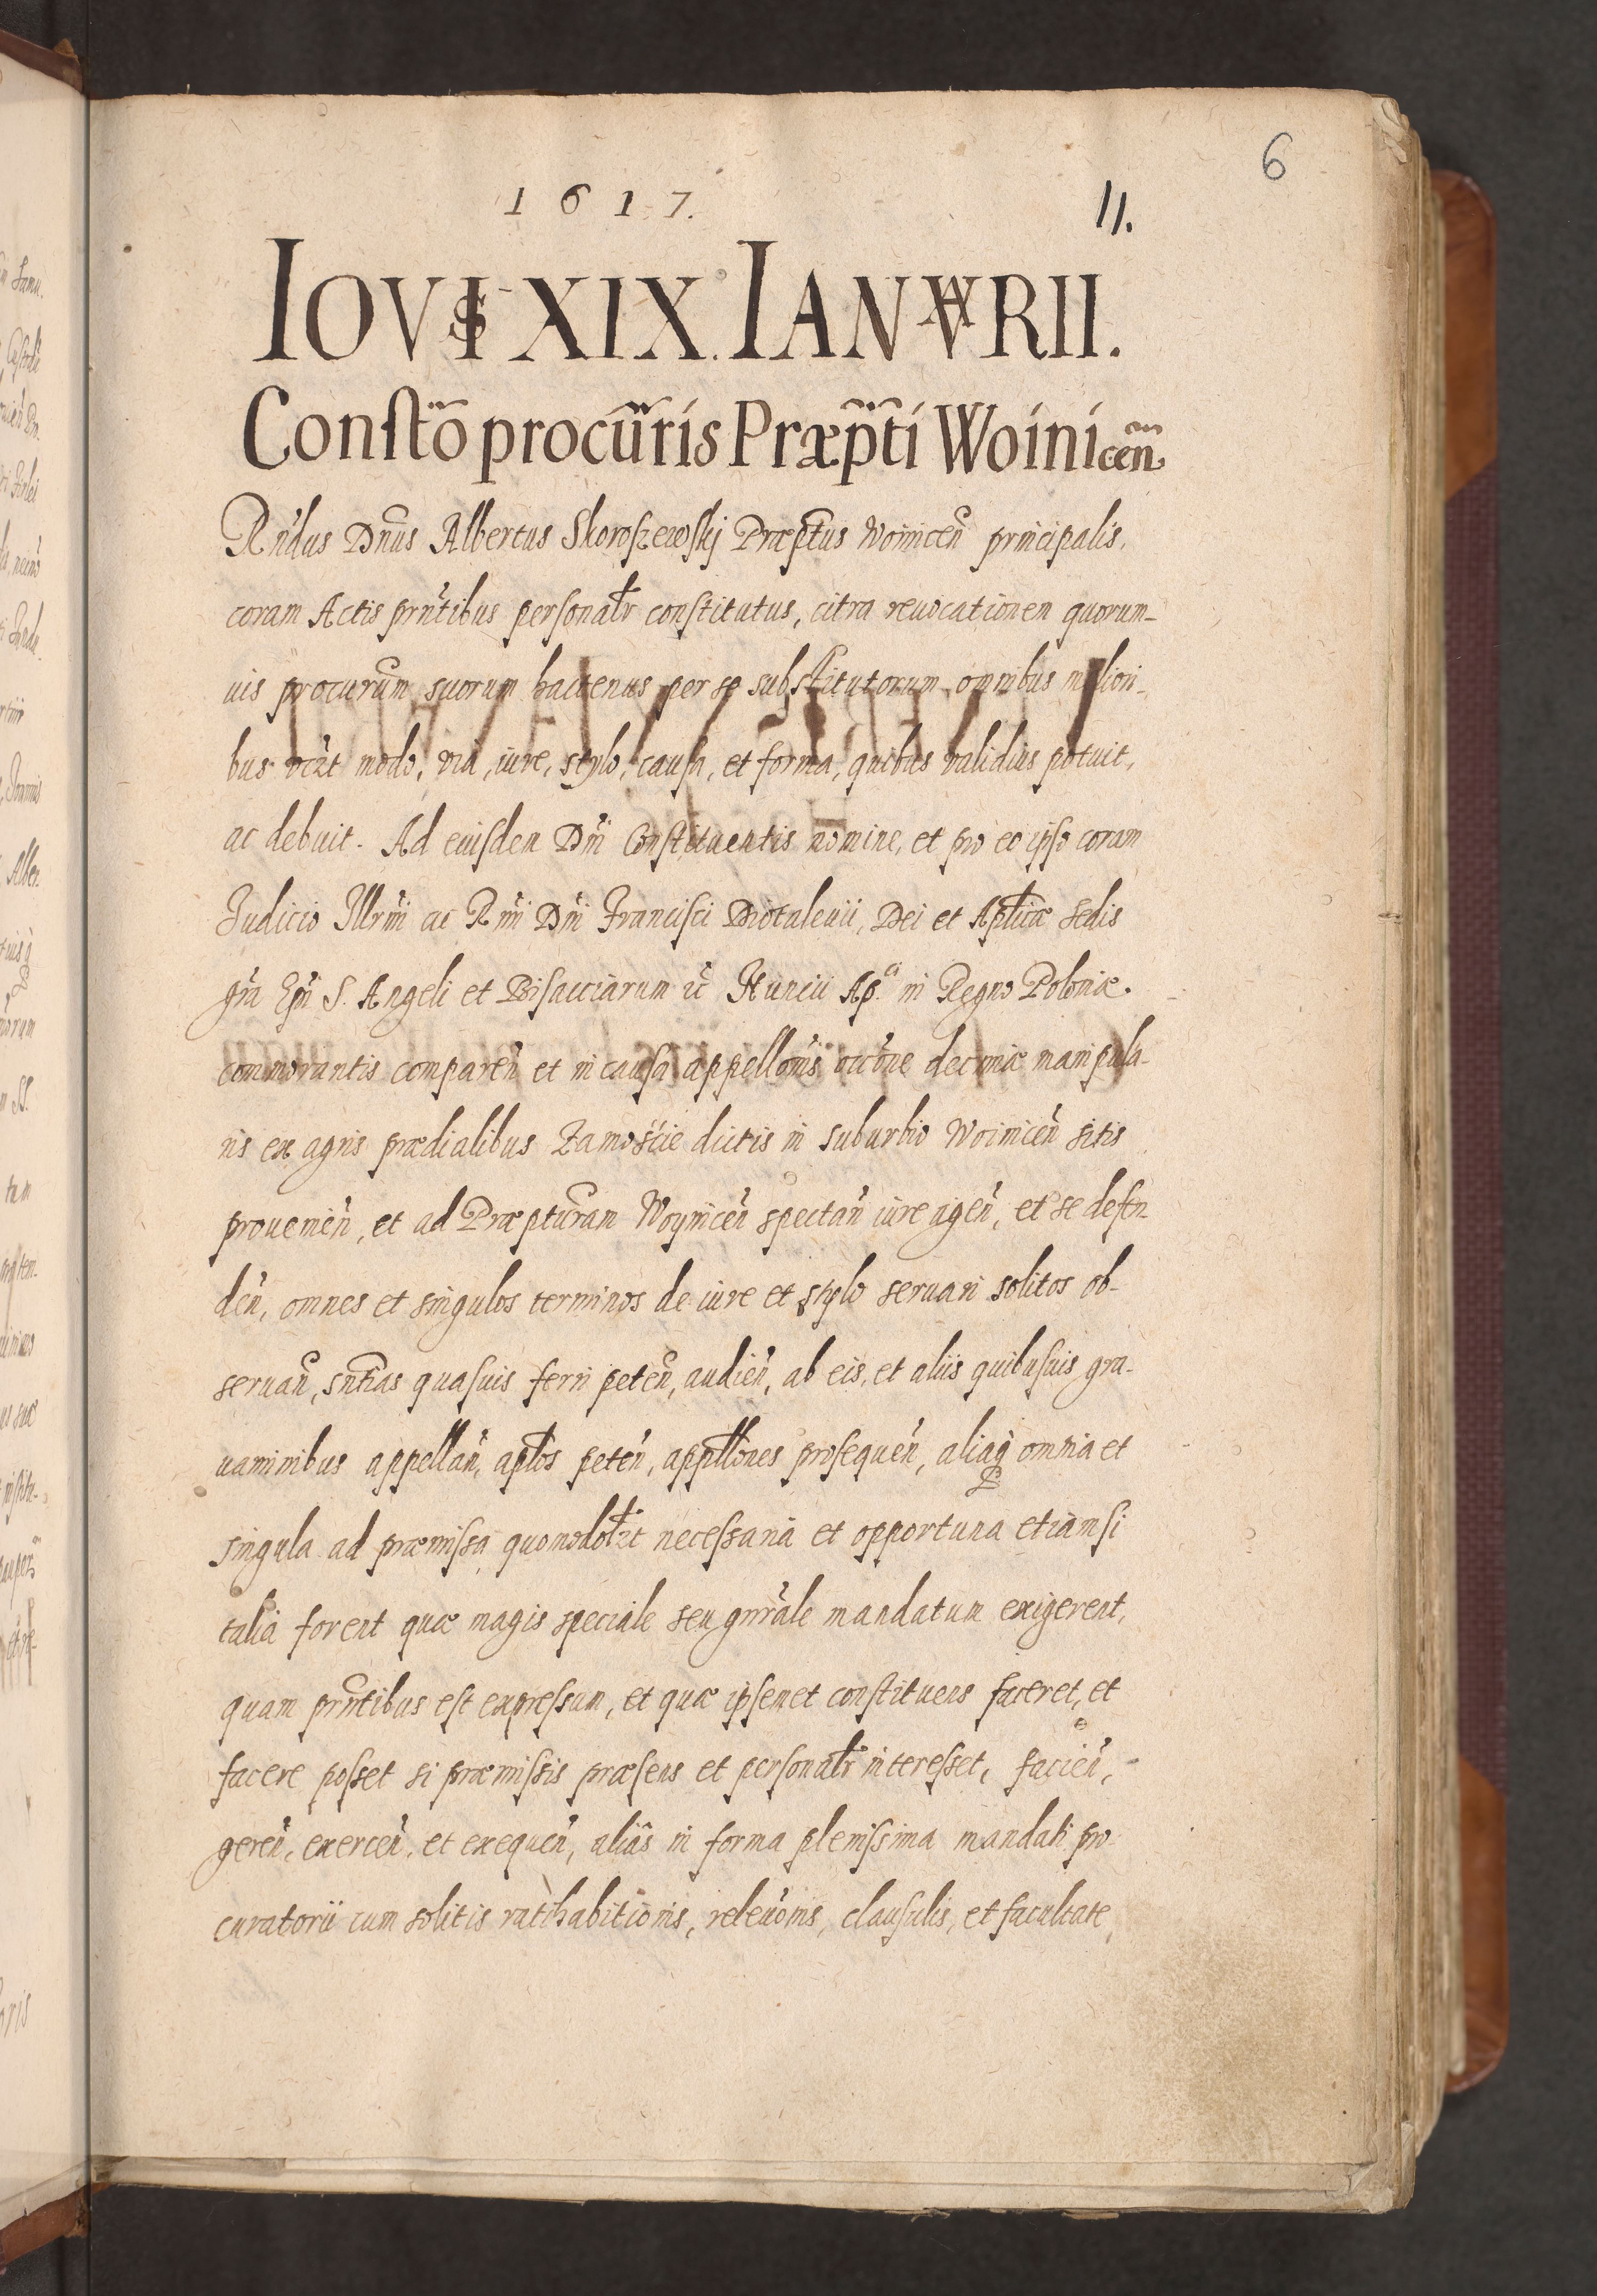 6
1617.
11.
IOVIS XIX. IANVARII.
Constõ procũris Præpti Woinicen̄
Rn̄dus Dn̄us Albertus Skoroszewskj Præptus Woinicen̄ principalis,
coram Actis prn̄tibus personalr constitutus, citra reuocationem quorum-
uis procurum suorum hactenus per se substitutorum, omnibus meliori-
bus modo, via, iure, stylo, causa, et forma, quibus validius potuit,
ac debuit. Ad eiusdem Dn̄i Constituentis nomine, et pro eo ipso coram
Iudicio Illrmi ac Rmi Dn̄i Francisci Diotaleuii, Dei et Aplicæ Sedis
gra Epi S. Angeli et Bisacciarum Nuncii Ap. in Regno Poloniæ
commorantis comparen̄ et in causa appellonis decimæ manipula-
ris ex agris prædialibus Zamoście dictis in suburbio Woinicen̄ sitis
prouenien̄, et ad Præpturam Woynicen̄ spectan̄ iure agen̄, et se defen-
den̄, omnes et singulos terminos de iure et stylo seruari solitos ob-
seruan̄, sntias quasuis ferri peten̄, audien̄, ab eis, et aliis quibusuis gra-
uaminibus appellan̄, aplos peten̄, appllones prosequen̄, aliaq omnia et
singula ad præmissa quomodolzt necessaria et opportuna etiamsi
talia forent quæ magis speciale seu gnrale mandatum exigerent,
quam prn̄tibus est expressum, et quæ ipsemet constituens faceret, et
facere posset si præmissis præsens et personalr interesset, facien̄,
geren̄, exercen̄, et exequen̄, alias in forma plenissima mandati pro-
curatorii cum solitis ratihabitionis, releuonis, clausulis, et facultate